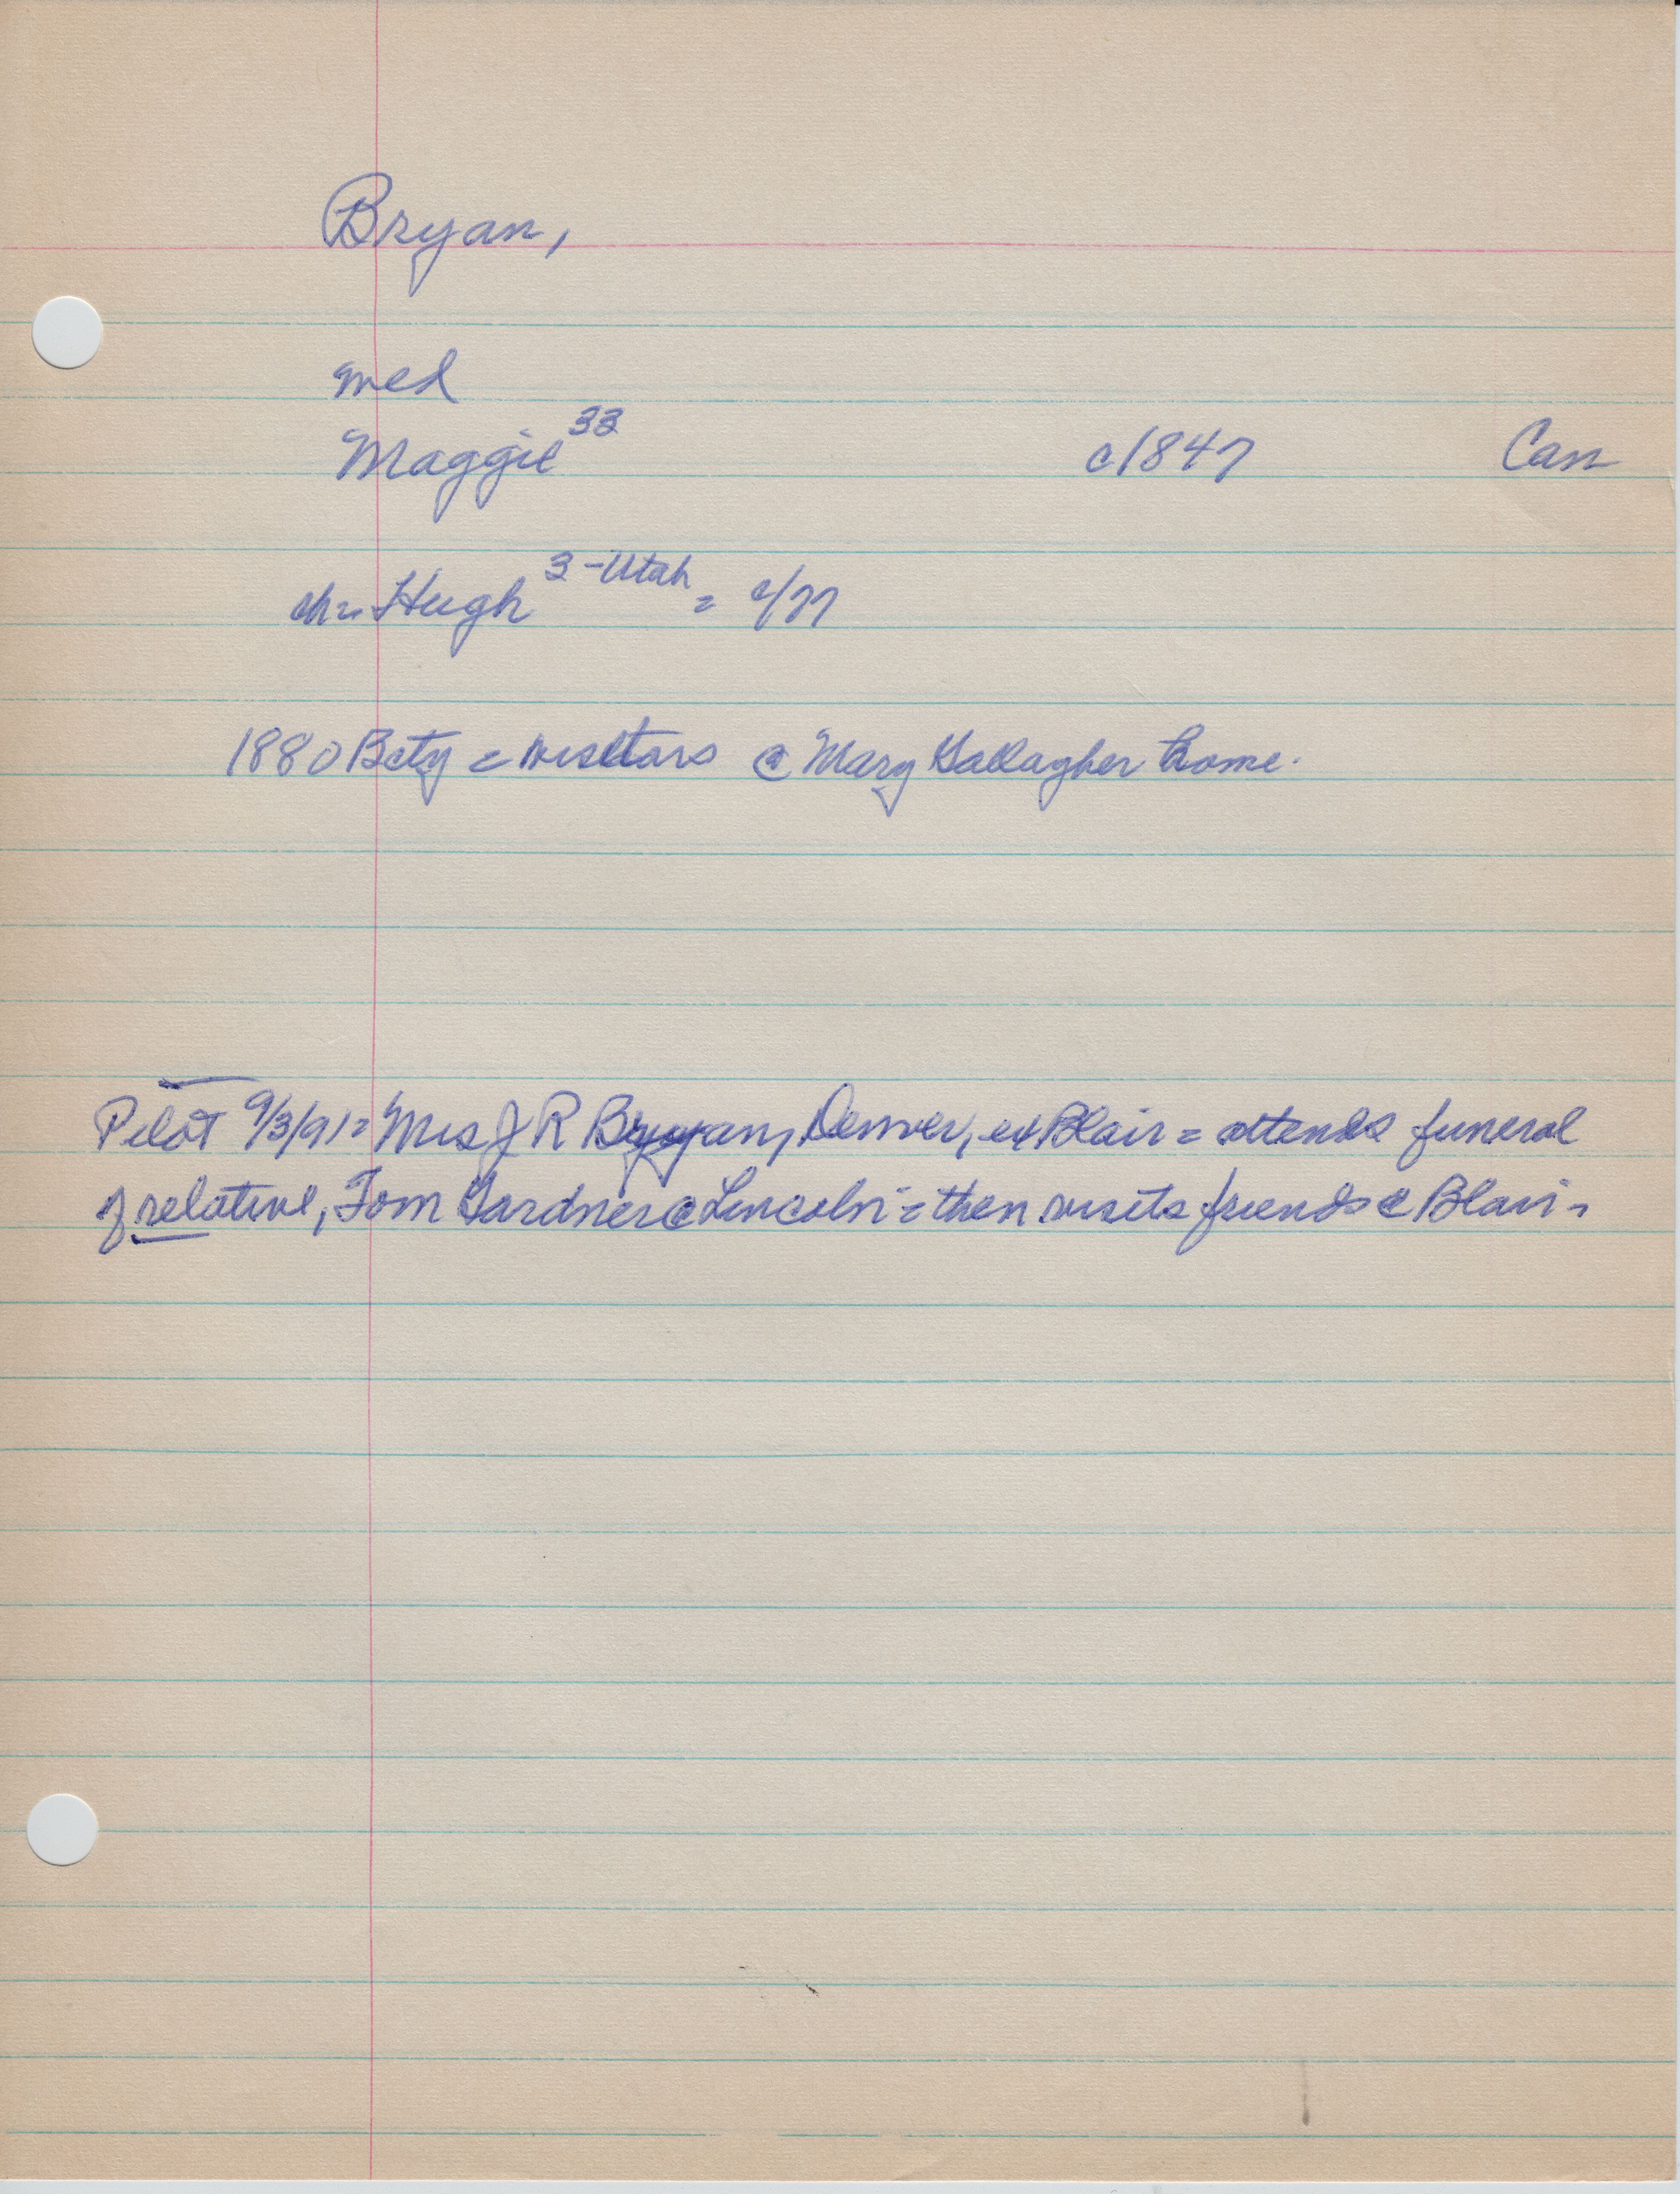 Bryan,
med
Maggie 33 c1847 Can
ch = Hugh 3-Utah = c/77
1880 Bcty = visitors @ Mary Gallagher home.
Pilot 9/3/91 = Mrs J R Bryan, Denver, ex Blair = attends funeral
of relative, Tom Gardner @ Lincoln = then visits friends @ Blair -